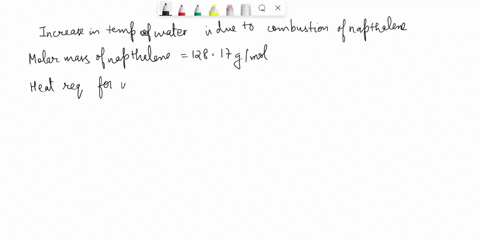 Increase in temp of water is due to combustion of napthalene
Molar mass of napthalene = 128.17 g/mol
Heat req for